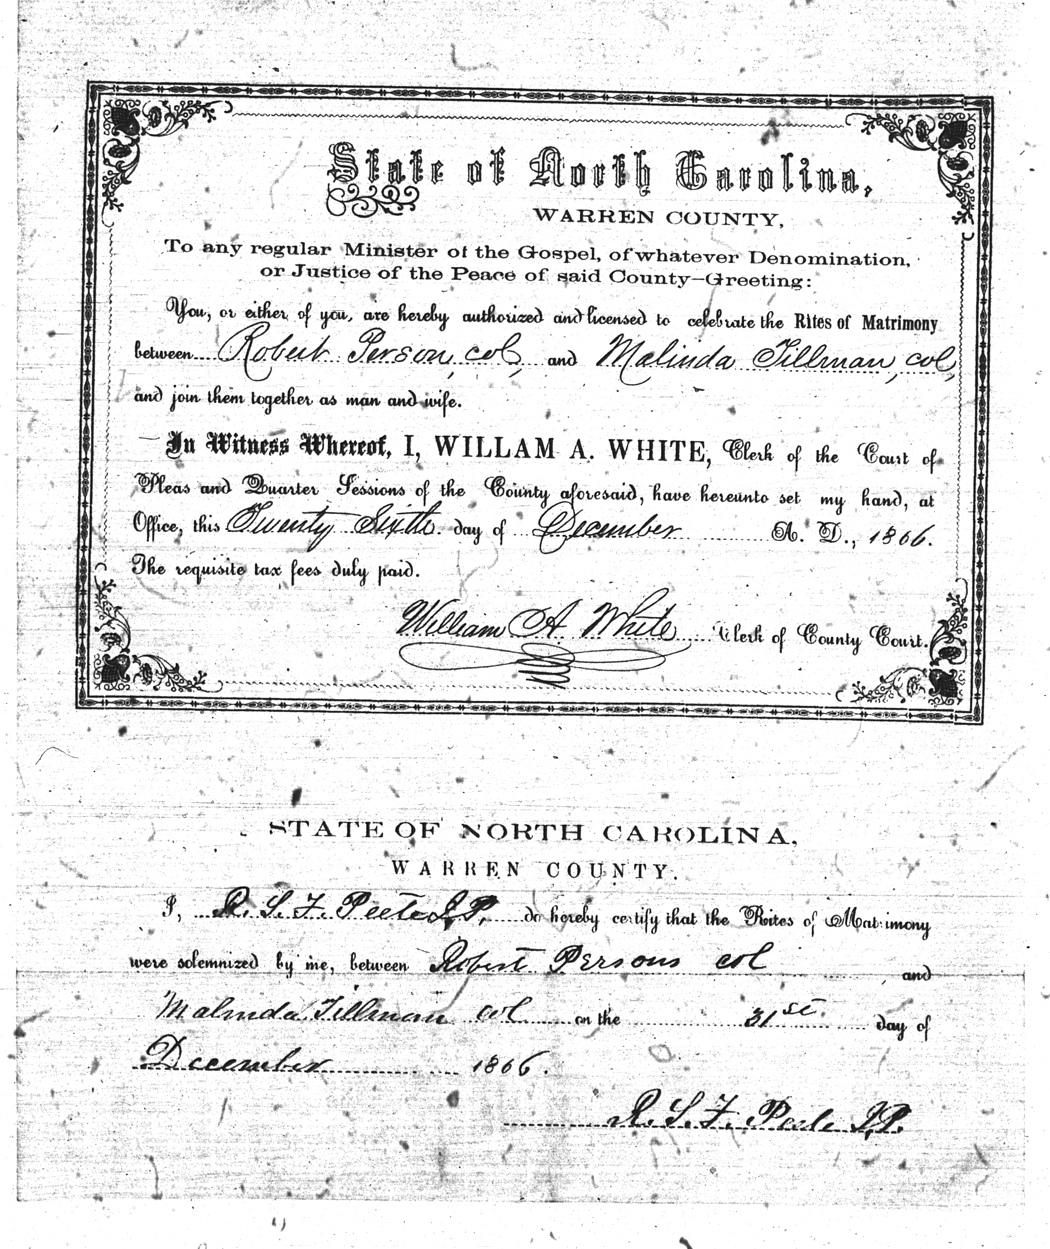 State of North Carolina,
WARREN COUNTY,
To any regular Minister of the Gospel, of whatever Denomination,
or Justice of the Peace of said County—Greeting:
You, or either of you, are hereby authorized and licensed to celebrate the Rites of Matrimony
between Robert Person, col, and Malinda Tillman, col,
and join them together as man and wife.
In Witness Whereof, I, WILLAM A. WHITE, Clerk of the Court of
Pleas and Quarter Sessions of the County aforesaid, have hereunto set my hand, at
Office, this Twenty Sixth day of December A. D., 1866.
The requisite tax fees duly paid.
William A White Clerk of County Court.
STATE OF NORTH CAROLINA,
WARREN COUNTY.
I, R. S. F. Peete J.P. do hereby certify that the Rites of Matrimony
were solemnized by me, between Robert Persons col and
Malinda Tillman col on the 31st day of
December 1866.
R. S. F. Peete J.P.